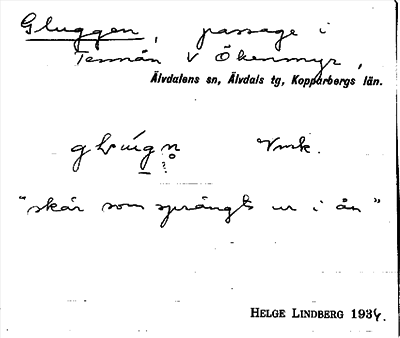 Gluggen, passage i
Tennån V Ökenmyr,
Älvdalens sn, Älvdals tg, Kopparbergs län.
Vmk.
"skår som sprängts ur i ån"
HELGE LINDBERG 1934.